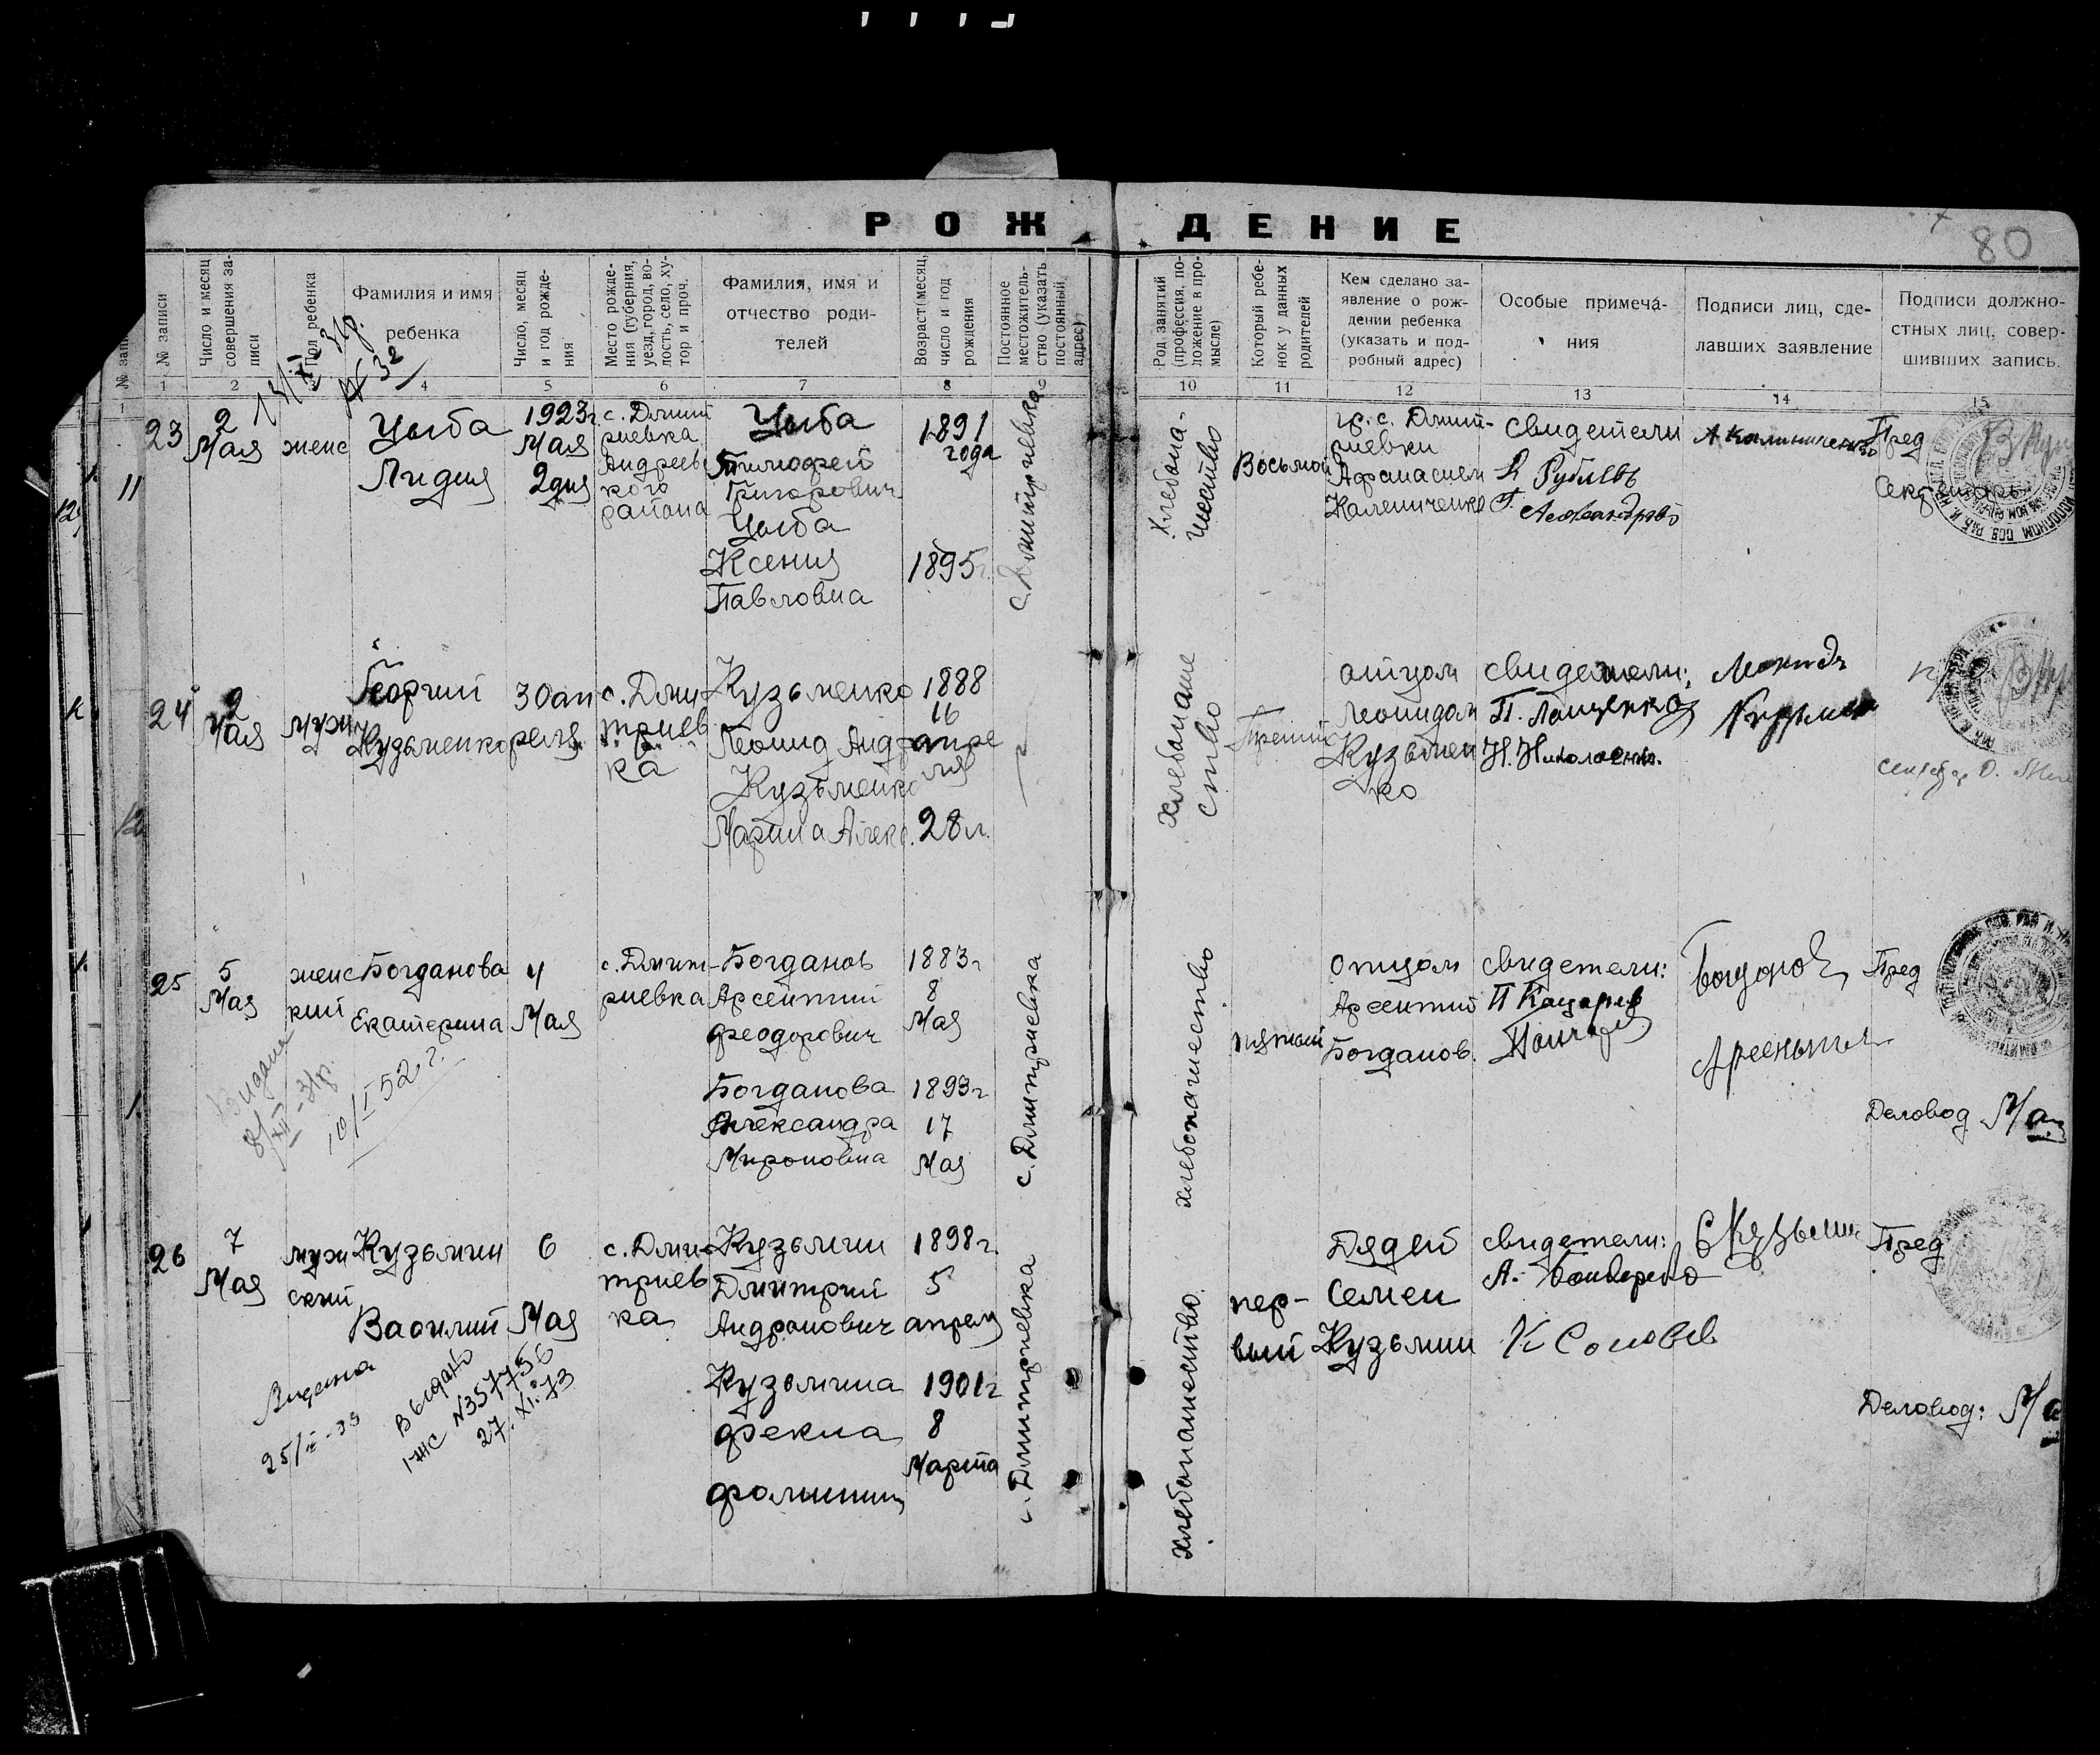 РОЖДЕНИЕ
80
№ записи
Число и месяц совершения записи
Пол ребенка
Фамилия и имя
ребенка
Число, месяц и год рождения
Место рождения (губерния, уезд, город, волость, село, хутор и проч.
Фамилия, имя и
отчество роди-
телей
Возраст (месяц, число и год рождения
Постоянное местожительство (указать постоянный адрес)
Род занятий (профессия, положение в промысле)
Который ребенок у данных родителей
Кем сделано за-
явление о рож-
дении ребенка
(указать и под-
робный адрес)
Особые примеча-
ния
Подписи лиц, сде-
лавших заявление
Подписи должно-
стных лиц, совер-
шивших запись.
1 2 4 5 6 7 8 10 11 12 13 14 15
23
2
Мая
женс
Цыба
Лидия
1923г
Мая
2дня
с. Дмит
риевка
Андреевс
кого
района
Цыба
Тимофей
Григорович
Цыба
Ксения
Павловна
1891
года
1895г
с. Дмитриевка
Хлебопа-
шество
Восьмой
гр. с. Дмит-
риевки
Афанасием
Калениченко
свидетели
Рублевъ
Г.
А Калиниченко
Пред
Секретарь
24
2
Мая
муж
Георгий
Кузьменко
30 ап
реля
с. Дми
триев
ка
Кузьменко
Леонид Андр
Кузьменко
Марина Алекс.
1888
16
апре
ля
28 л.
хлебопаше
ство
Третий
отцом
Леонидом
Кузьмен
ко
свидетели:
П. Лащенко
Н. Николаенко
25
5
Мая
женс
кий
Богданова
Екатерина
4
Мая
с. Дмит-
риевка
Богданов
Арсентий
Феодорович
Богданова
Александра
Мироновна
1883г
8
Мая
1893г
17
Мая
с. Дмитриевка
хлебопашество
пятый
отцом
Арсентий
Богданов.
свидетели:
Пред
Деловод
10/I 52 г.
26
7
Мая
муж
ский
Кузьмин
Василий
6
Мая
с. Дми-
триев
ка
Кузьмин
Дмитрий
Андронович
Кузьмина
Фекла
1898г.
5
апреля
1901г
8
Марта
с. Дмитриевка
хлебопашество
пер-
вый
Дядей
Семен
Кузьмин
свидетели:
К Соловев
Пред
Деловод:
Выдано
N357756
27.XI.73